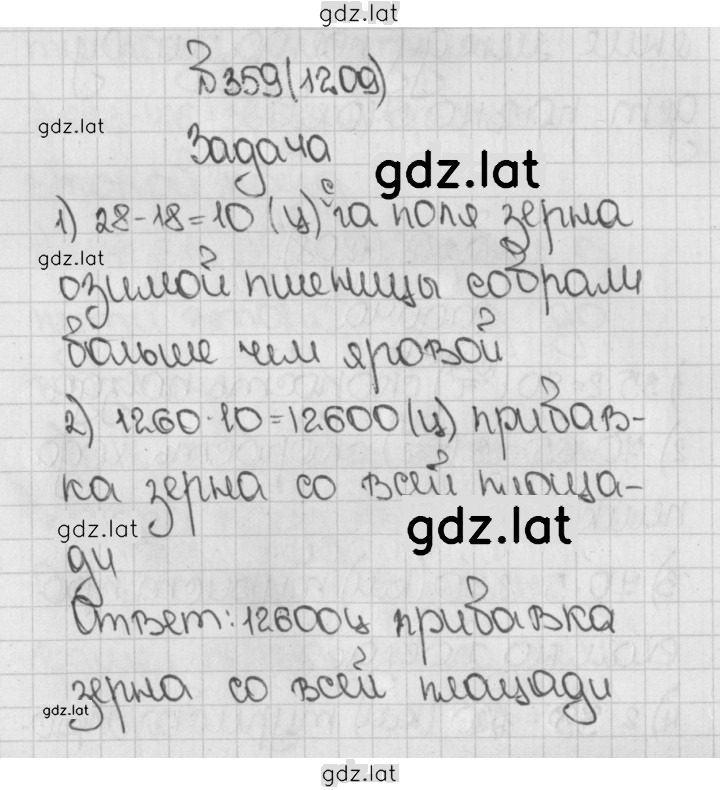 gdz.lat
№359(1209)
gdz.lat
Задача
gdz.lat
1) 28-18=10 (ц) с га поля зерна
gdz.lat
озимой пшеницы собрали
больше чем яровой
2) 1260·10=12600(ц) прибав-
ка зерна со всей площа-
gdz.lat
gdz.lat
ди
Ответ: 12600ц прибавка
зерна со всей площади
gdz.lat
gdz.lat